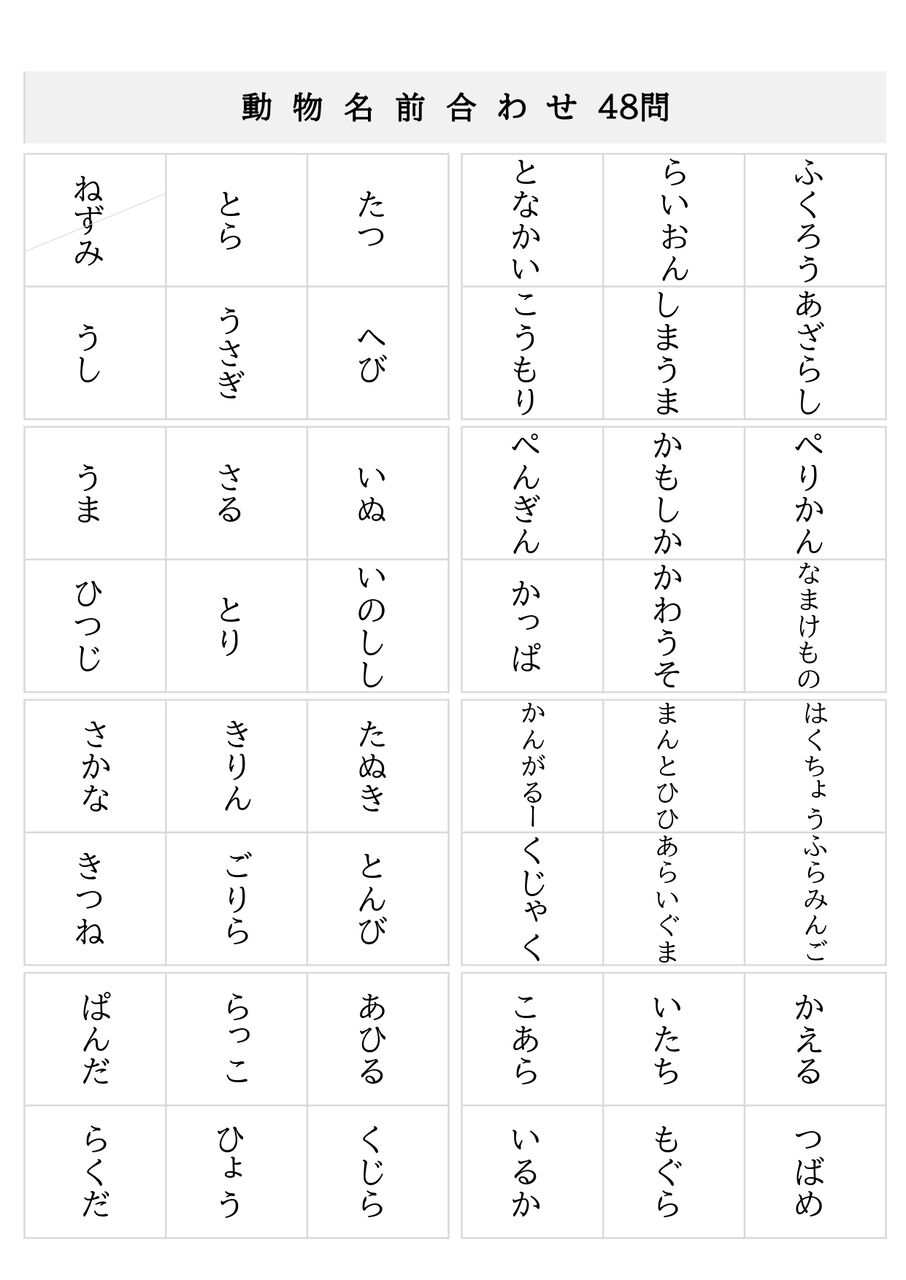 動物名前合わせ 48問
ねずみ
とら
たつ
となかい
らいおん
ふくろう
うし
うさぎ
へび
こうもり
しまうま
あざらし
うま
さる
いぬ
ぺんぎん
かもしか
ぺりかん
ひつじ
とり
いのしし
かっぱ
かわうそ
なまけもの
さかな
きりん
たぬき
かんがるー
まんとひひ
はくちょう
きつね
ごりら
とんび
くじゃく
あらいぐま
ふらみんご
ぱんだ
らっこ
あひる
こあら
いたち
かえる
らくだ
ひょう
くじら
いるか
もぐら
つばめ